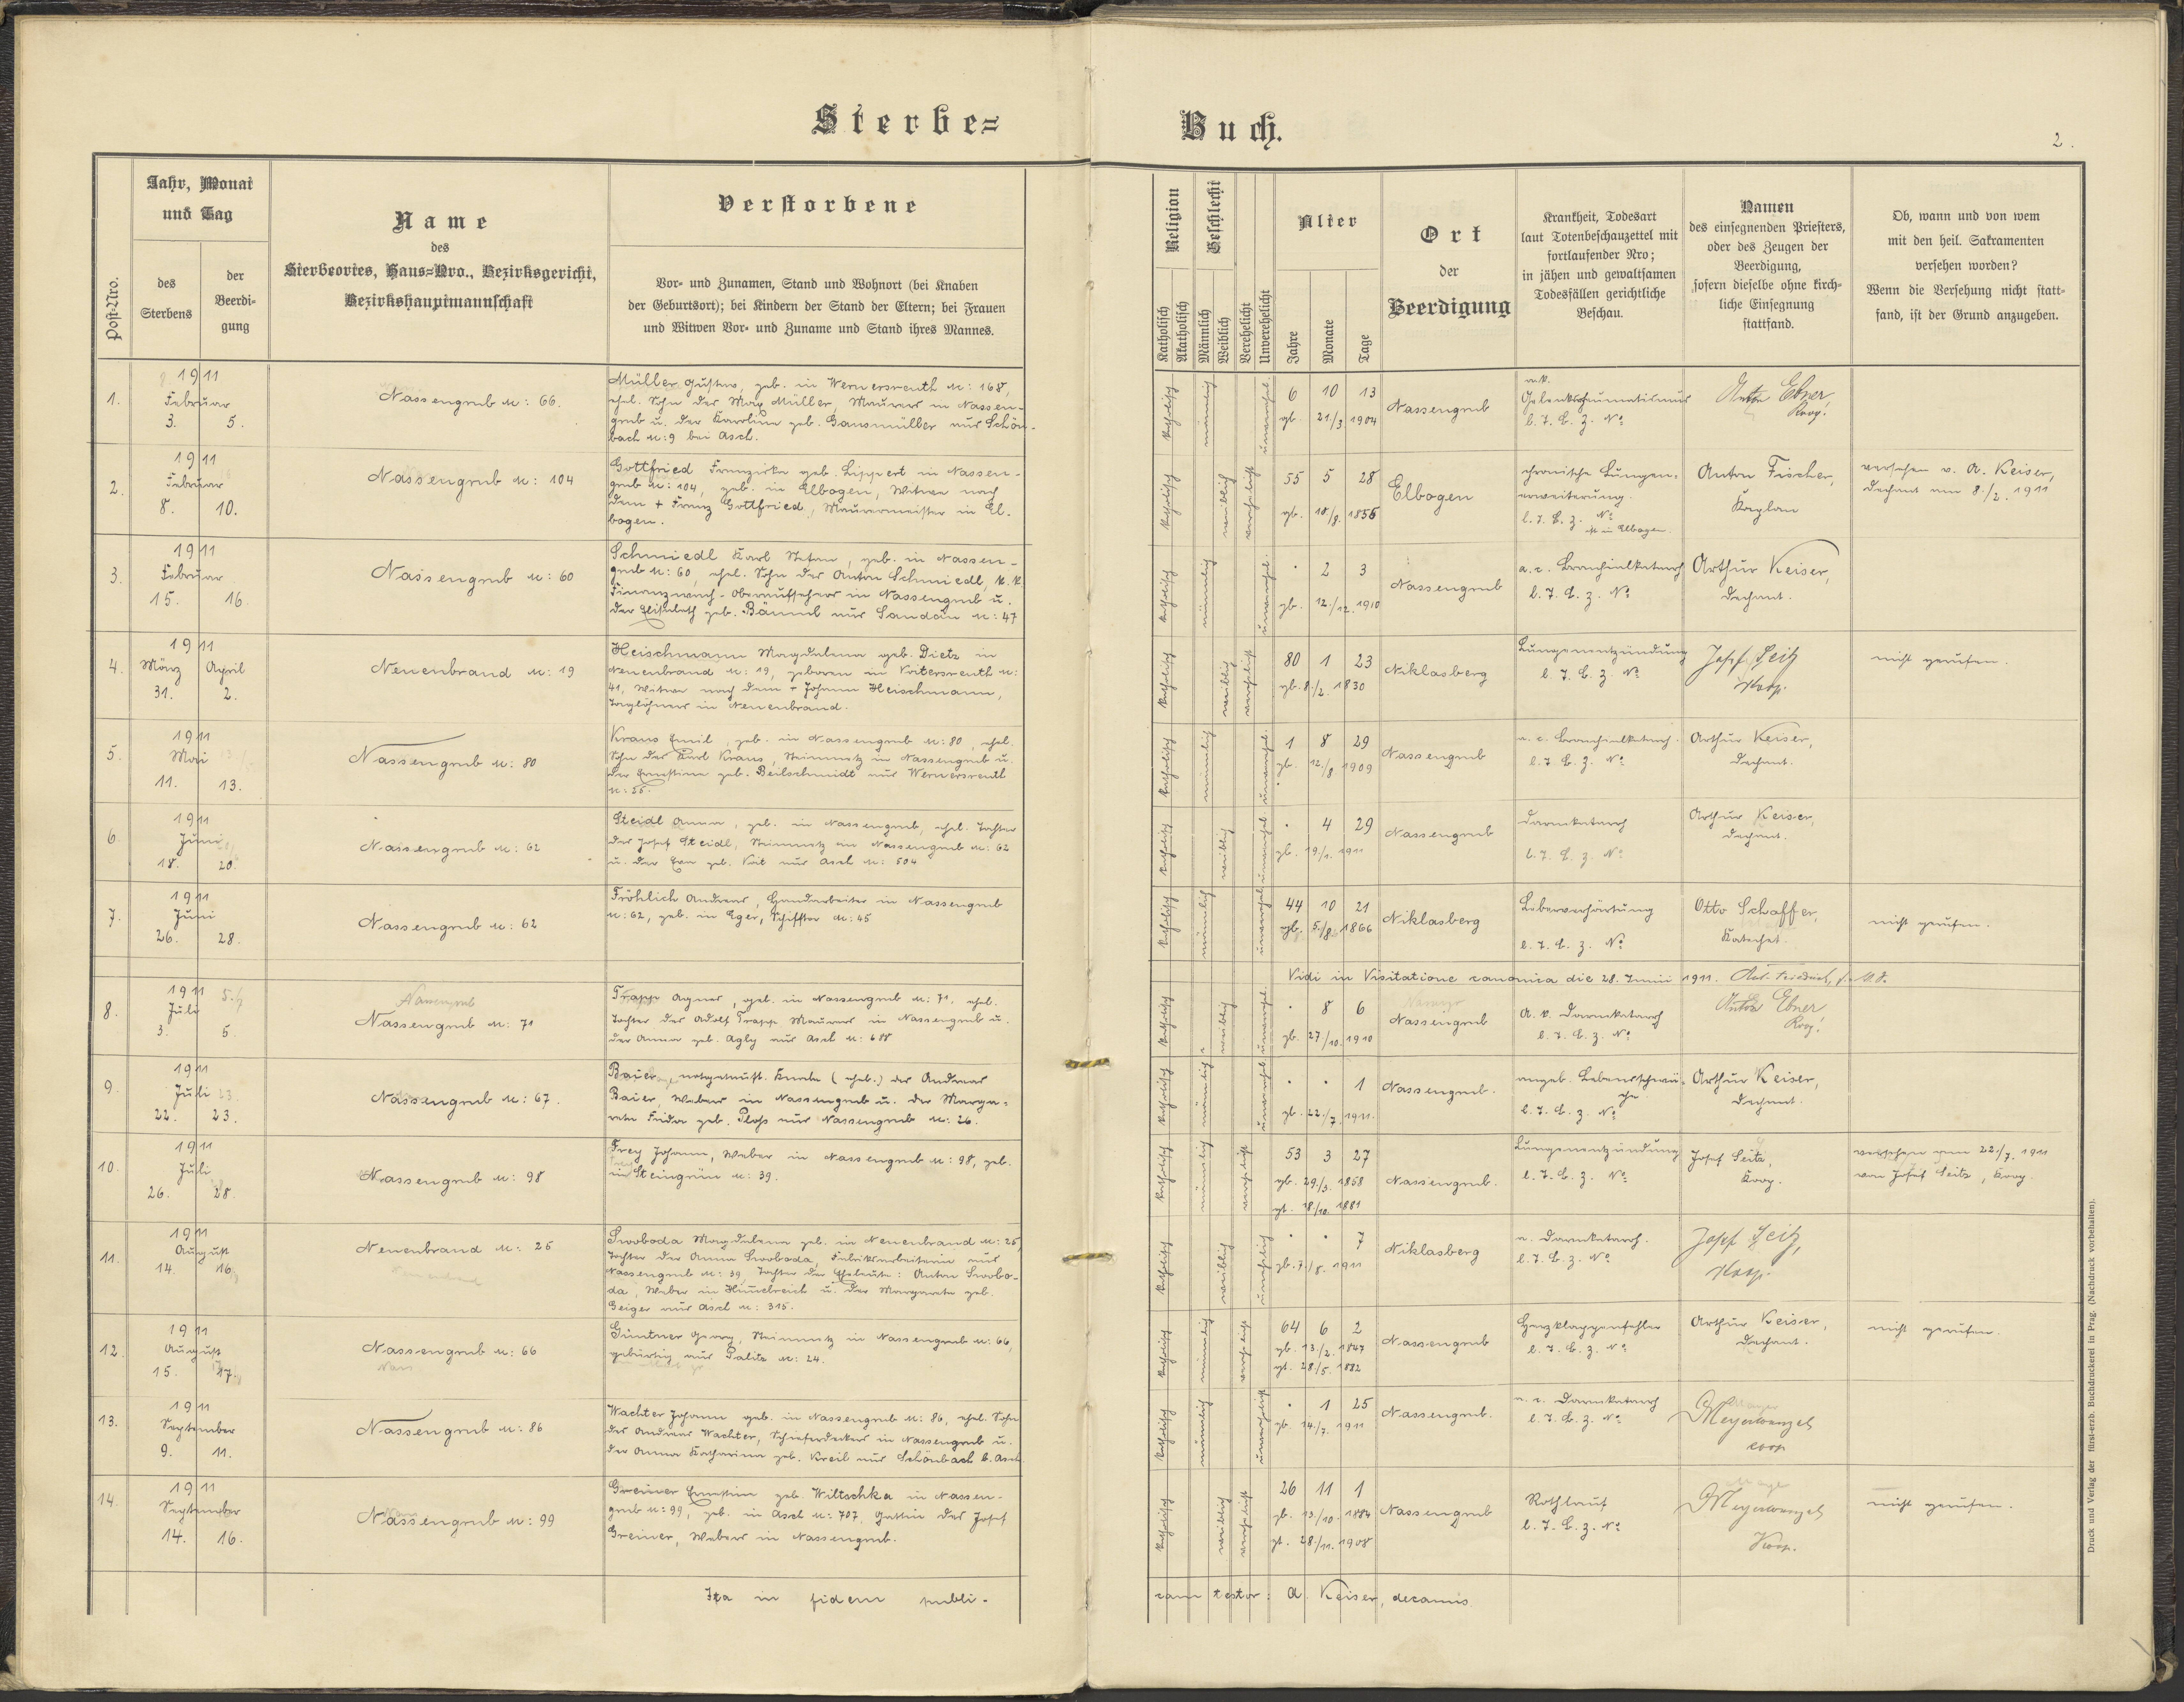 Sterbe=
Buch.
2.
Post-Nro.
Jahr, Monat
und Tag
des
Sterbens
der
Beerdi-
gung
Name
des
Sterbeortes, Haus=Nro., Bezirksgericht,
Bezirkshauptmannschaft
Verstorbene
Vor- und Zunamen, Stand und Wohnort (bei Knaben
der Geburtsort); bei Kindern der Stand der Eltern; bei Frauen
und Witwen Vor- und Zuname und Stand ihres Mannes.
Religion
Katholisch
Akatholisch
Geschlecht
Männlich
Weiblich
Verehelicht
Unverehelicht
Alter
Jahre
Monate
Tage
Ort
der
Beerdigung
Krankheit, Todesart
laut Totenbeschauzettel mit
fortlaufender Nro;
in jähen und gewaltsamen
Todesfällen gerichtliche
Beschau.
Namen
des einsegnenden Priesters,
oder des Zeugen der
Beerdigung,
sofern dieselbe ohne kirch-
liche Einsegnung
stattfand.
Ob, wann und von wem
mit den heil. Sakramenten
versehen worden?
Wenn die Versehung nicht statt-
fand, ist der Grund anzugeben.
1.
1911
Februar
3. 5.
Nassengrub N: 66.
Müller Gustav, geb. in Wernersreuth N: 168,
ehel. Sohn des Max Müller, Maurers in Nassen-
grub u. der Karoline geb. Gansmüller aus Schön-
bach N: 9 bei Asch.
katholisch
männlich
unverehel.
6 10 13
gb. 21/3 1904
Nassengrub
Gelenksrheumatismus
l. T. B. z. No
Anton Ebner
Koop.
2.
1911
Februar
8. 10.
Nassengrub N: 104
Gottfried Franziska geb. Lippert in Nassen-
grub N: 104, geb. in Elbogen, Witwe nach
dem + Franz Gottfried, Maurermeister in El-
bogen.
katholisch
weiblich
verehelicht
55 5 28
gb. 10/8. 1855
Elbogen
chronische Lungen-
erweiterung.
l. T. B. z. No
in Elbogen
Anton Fischer,
Kaplan
versehen v. A. Keiser,
Dechant am 8./2. 1911
3.
1911
Februar
15. 16.
Nassengrub N: 60
Schmiedl Karl Stefan, geb. in Nassen-
grub N: 60, ehel. Sohn des Anton Schmiedl, k. k.
Finanzwach-Oberaufsehers in Nassengrub u.
der Elisabeth geb. Bäuml aus Sandau N: 47
katholisch
männlich
unverehel.
. 2 3
gb. 12./12. 1910
Nassengrub
a. c. Bronchialkatarrh
l. T. B. z. No
Arthur Keiser,
Dechant.
4.
1911
März April
31. 2.
Neuenbrand N: 19
Heischmann Magdalena geb. Dietz in
Neuenbrand N: 19, geboren in Voitersreuth N:
41, Witwe nach dem + Johann Heischmann,
Taglöhners in Neuenbrand.
katholisch
weiblich
verehelicht
80 1 23
gb. 8./2. 1830
Niklasberg
Lungenentzündung
l. T. B. z. No
Josef Seitz
Koop.
nicht gerufen.
5.
1911
Mai
11. 13.
Nassengrub N: 80
Kraus Emil, geb. in Nassengrub N: 80, ehel.
Sohn des Karl Kraus, Steinmetz in Nassengrub u.
der Ernestine geb. Beilschmidt aus Wernersreuth
N: 25.
katholisch
männlich
unverehel.
1 8 29
gb. 12./8 1909
Nassengrub
a. c. Bronchialkatarrh.
l. T. B. z. No
Arthur Keiser,
Dechant.
6.
1911
Juni
18. 20.
Nassengrub N: 62
Steidl Anna, geb. in Nassengrub, ehel. Tochter
des Josef Steidl, Steinmetz in Nassengrub N: 62
u. der Eva geb. Veit aus Asch N: 504
katholisch
weiblich
unverehel.
. 4 29
gb. 19./1. 1911
Nassengrub
Darmkatarrh
l. T. B. z. No
Arthur Keiser,
Dechant.
7.
1911
Juni
26. 28.
Nassengrub N: 62
Fröhlich Andreas, Handarbeiter in Nassengrub
N: 62, geb. in Eger, Schiffter N: 45
katholisch
männlich
unverehel.
44 10 21
gb. 5./8. 1866
Niklasberg
Leberverhärtung
l. T. B. z. No
Otto Schaffer,
Katechet.
nicht gerufen.
Vidi in Visitatione canonica die 28. Junii 1911.
8.
1911
Juli
3. 5.
Nassengrub
Nassengrub N: 71
Trapp Agnes, geb. in Nassengrub N: 71, ehel.
Tochter des Adolf Trapp Maurers in Nassengrub u.
der Anna geb. Agly aus Asch N: 688
katholisch
weiblich
unverehel.
. 8 6
gb. 27/10. 1910
Nassengrub
A. c. Darmkatarrh
l. T. B. z. No
Anton Ebner
Koop.
9.
1911
Juli
22. 23.
Nassengrub N: 67.
Baier, notgetauft. Knabe (ehel.) des Andreas
Baier, Weber in Nassengrub u. der Marga-
rete Frida geb. Ploß aus Nassengrub N: 26.
katholisch
männlich
unverehel.
. . 1
gb. 22./7. 1911.
Nassengrub.
angeb. Lebensschwä-
che.
l. T. B. z. No
Arthur Keiser,
Dechant.
10.
1911
Juli
26. 28.
Nassengrub N: 98
Frey Johann, Weber in Nassengrub N: 98, geb.
in Steingrün N: 39.
katholisch
männlich
verehelicht
53 3 27
gb. 29./3. 1858
gt. 18./10. 1881
Nassengrub.
Lungenentzündung
l. T. B. z. No
Josef Seitz,
Koop.
versehen am 22./7. 1911
von Josef Seitz, Koop.
11.
1911
August
14. 16.
Neuenbrand N: 25
Neuenbrand
Swoboda Magdalena geb. in Neuenbrand N: 25,
Tochter der Anna Swoboda, Fabriksarbeiterin aus
Nassengrub N: 39, Tochter der Eheleute: Anton Swobo-
da, Weber in Himmelreich u. der Margareta geb.
Geiger aus Asch N: 315.
katholisch
weiblich
unehelich
. . 7
gb. 7./8. 1911
Niklasberg
a. Darmkatarrh.
l. T. B. z. No
Josef Seitz,
Koop.
12.
1911
August
15. 17.
Nassengrub N: 66
Güntner Georg, Steinmetz in Nassengrub N: 66,
gebürtig aus Palitz N: 24.
katholisch
männlich
verehelicht
64 6 2
gb. 13./2. 1847
gt. 28./5. 1882
Nassengrub
Herzklappenfehler
l. T. B. z. No
Arthur Keiser,
Dechant.
nicht gerufen.
13.
1911
September
9. 11.
Nassengrub N: 86
Wachter Johann geb. in Nassengrub N: 86, ehel. Sohn
des Andreas Wachter, Schieferdecker in Nassengrub u.
der Anna Katharina geb. Kreil aus Schönbach b. Asch
katholisch
männlich
unverehelicht
. 1 25
gb. 14./7. 1911
Nassengrub.
a. c. Darmkatarrh
l. T. B. z. No
coop
14.
1911
September
14. 16.
Nassengrub N: 99
Greiner Ernestine geb. Wiltschka in Nassen-
grub N: 99, geb. in Asch N: 707, Gattin des Josef
Greiner, Weber in Nassengrub.
katholisch
weiblich
verehelicht
26 11 1
gb. 13./10. 1884
gt. 28./11. 1908
Nassengrub
Rothlauf
l. T. B. z. No
Koop.
nicht gerufen.
Ita in fidem publi-
cam testor: A. Keiser, decanus.
Druck und Verlag der fürst-erzb. Buchdruckerei in Prag. (Nachdruck vorbehalten).